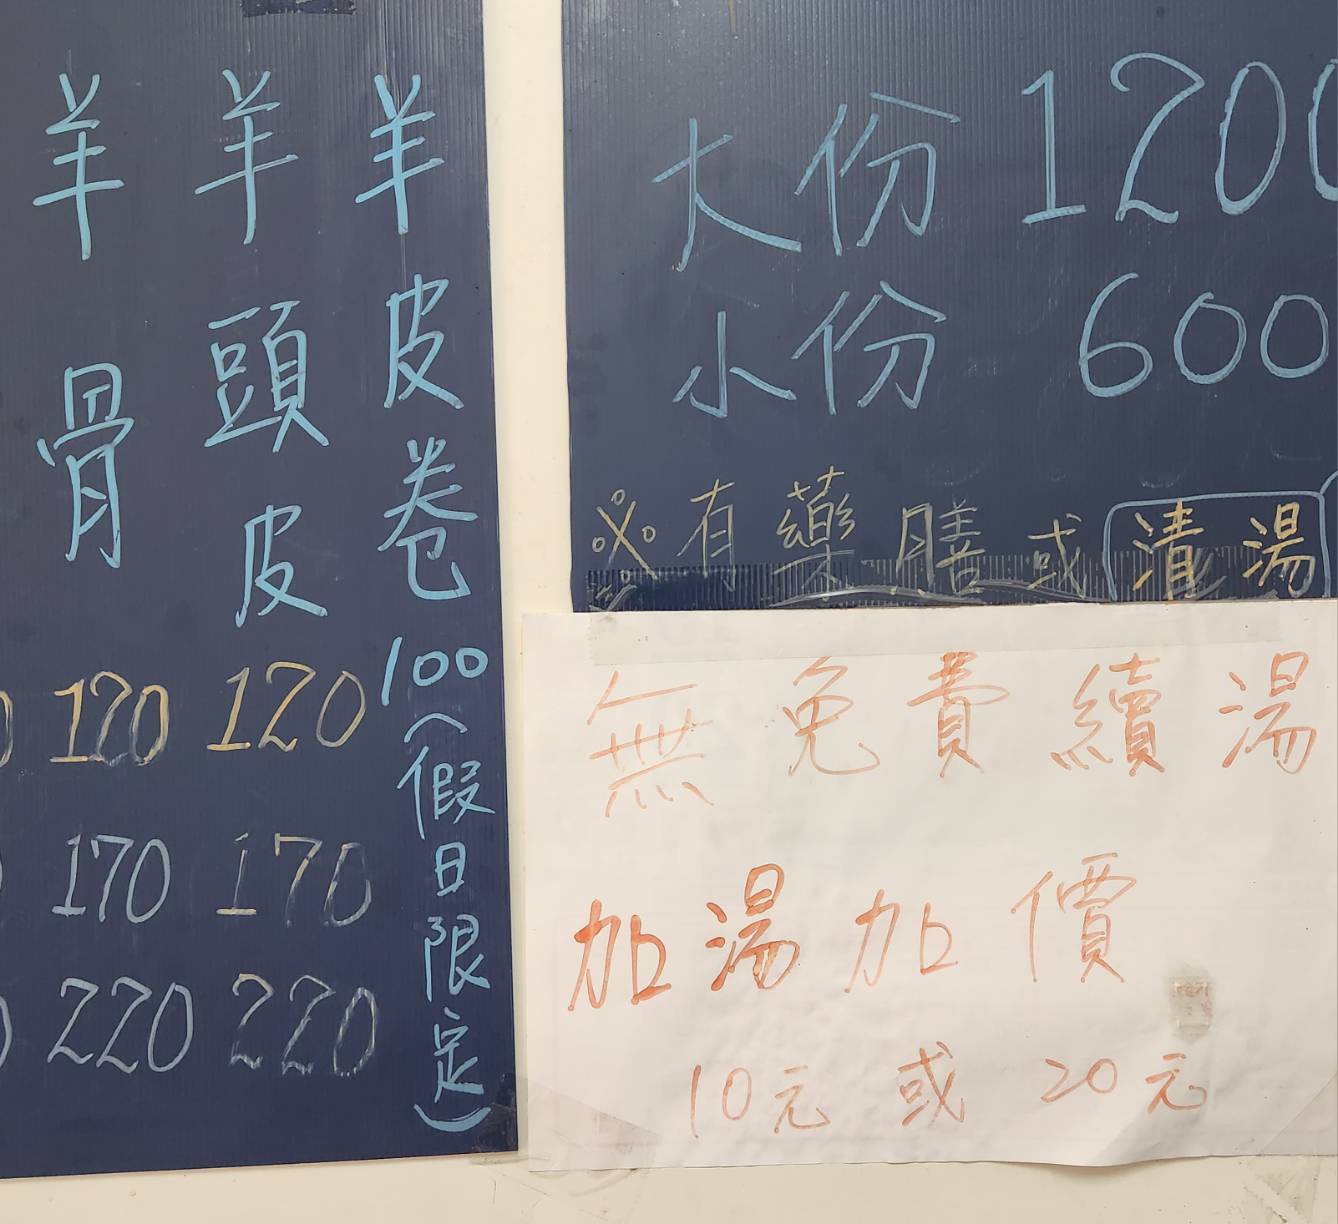 羊皮卷100(假日限定)
羊頭皮
120
170
220
羊骨
120
170
220
大份 1200
小份 600
※有藥膳或清湯
無免費續湯
加湯加價
10元或20元